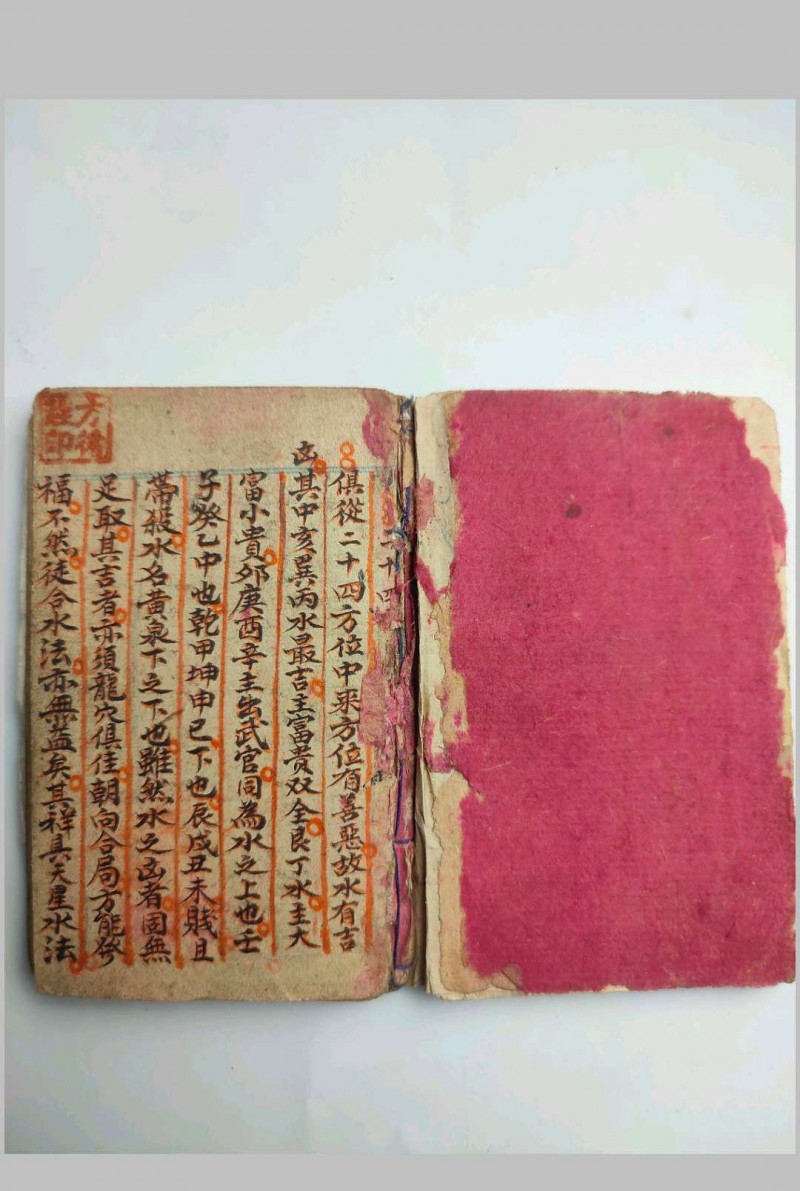 二十四
俱從二十四方位中來方位有善惡故水有吉
凶其中亥巽丙水最吉主富貴双全艮丁水主大
富小貴夘庚酉辛主出武官同為水之上也壬
子癸乙中也乾甲坤申巳下也辰戌丑未賤且
帶殺水名黃泉下之下也雖然水之凶者固無
足取其吉者亦須龍穴俱佳朝向合局方能發
福不然徒合水法亦無益矣其祥具天星水法